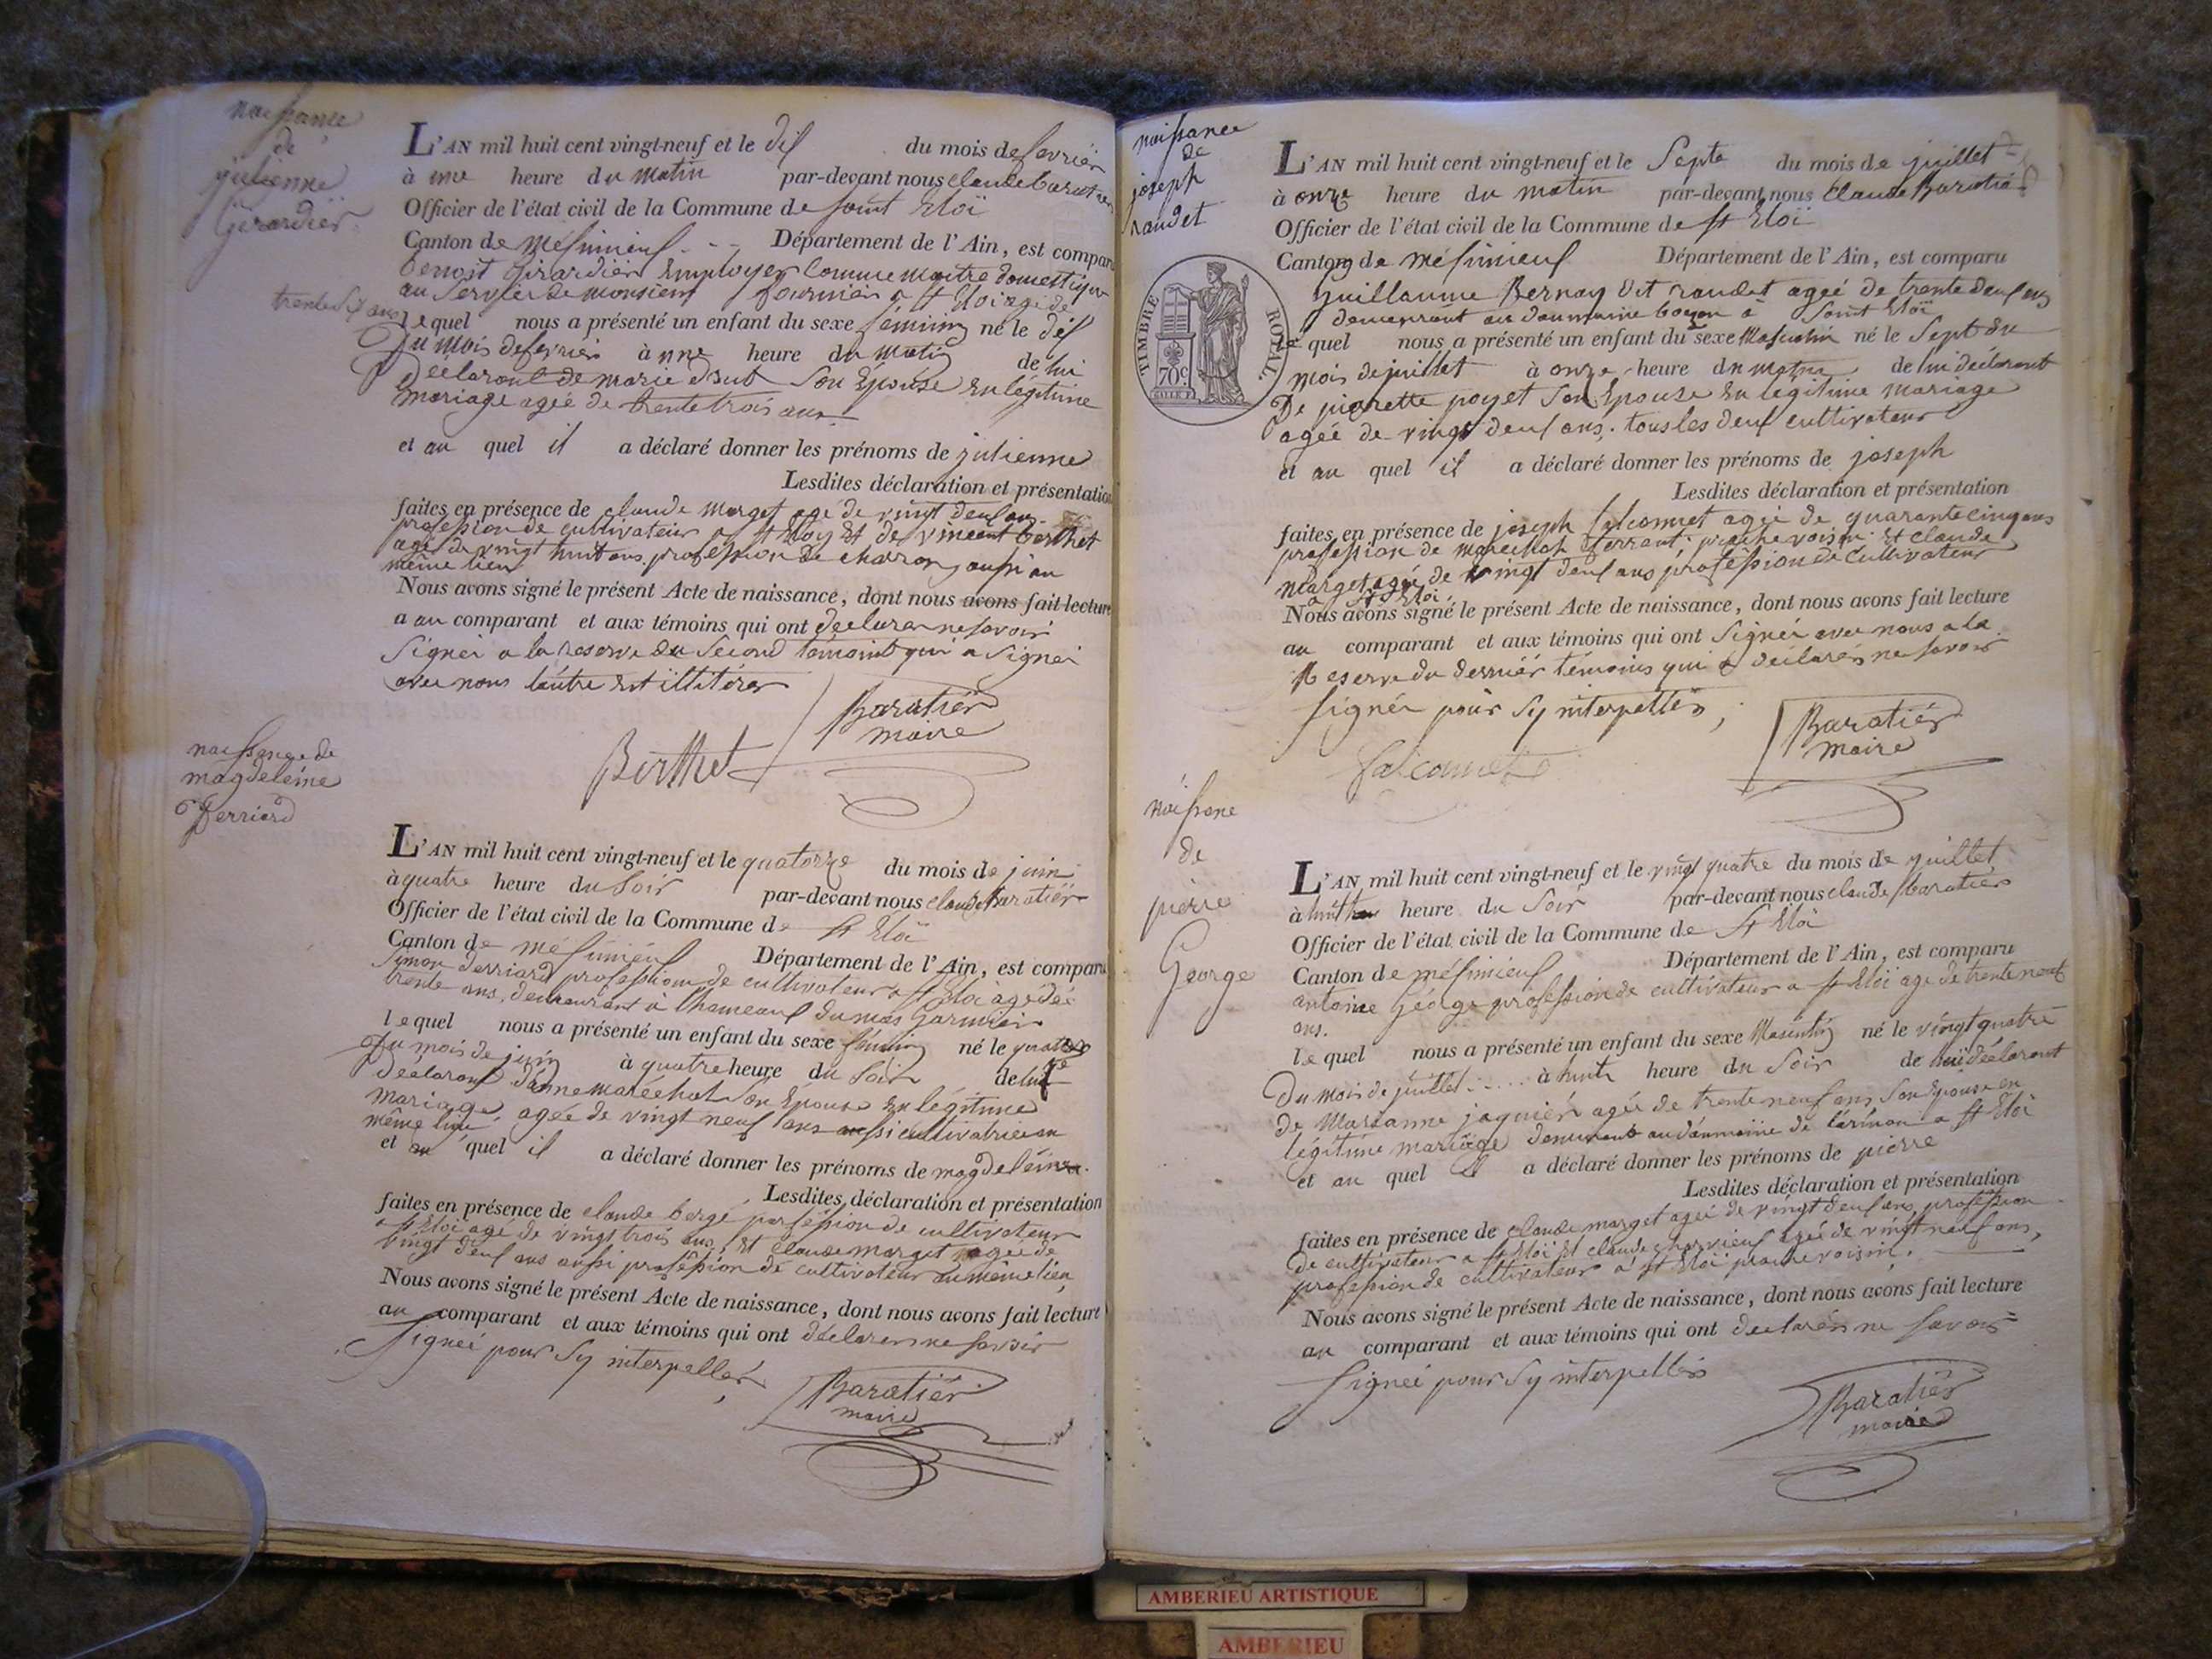 naissance
de
julienne
Girardier
L'AN mil huit cent vingt-neuf et le dix du mois de fevrier
à une heure du matin par-devant nous claude baratier
Officier de l'état civil de la Commune de saint Eloï
Canton de Méximieux Département de l'Ain, est comparu
benoit Girardier Employer comme maitre domestique
au Service de monsieur fournier a st Eloi agé de
trente six ans
lequel nous a présenté un enfant du sexe féminin né le dix
du mois de fevrier à une heure du matin de lui
declarant de marie son Epouse en légitime
mariage agée de trente trois ans
et au quel il a déclaré donner les prénoms de julienne
Lesdites déclaration et présentation
faites en présence de claude marget age de vingt deux ans
profession de cultivateur a st Eloy Et de vincent berthet
agé de vingt huit ans profession de charon aussi au
même lieu
Nous avons signé le présent Acte de naissance, dont nous avons fait lecture
a au comparant et aux témoins qui ont declarer ne savoir
Signer a la reserve du Second témoint qui a Signer
avec nous lautre est illitérer
Baratier
maire
Berthet
naissance de
magdeleine
Derriard
L'AN mil huit cent vingt-neuf et le quatorze du mois de juin
à quatre heure du Soir par-devant nous claude baratier
Officier de l'état civil de la Commune de st Eloï
Canton de méximieux Département de l'Ain, est comparu
Simon derriard profession de cultivateur a st Eloi agé de
trente ans, demeurant à lhameaux du mas Garnier
lequel nous a présenté un enfant du sexe féminin né le quatorze
du mois de juin à quatre heure du Soir de lui
declarant d'anne maréchal Son Epouse En légitime
mariage, agée de vingt neuf ans aussi cultivatrice au
même lieu
et au quel il a déclaré donner les prénoms de magdeleine
Lesdites déclaration et présentation
faites en présence de claude bergé profession de cultivateur
a st Eloi agé de vingt trois ans, Et claude marget agée de
vingt deux ans aussi profession de cultivateur au même lieu
Nous avons signé le présent Acte de naissance, dont nous avons fait lecture
au comparant et aux témoins qui ont déclarer ne savoir
Signée pour Sy interpellér
Baratier
maire
naissance
de
joseph
raudet
TIMBRE ROYAL
70c
L'AN mil huit cent vingt-neuf et le Septe du mois de juillet
à onze heure du matin par-devant nous Claude Baratier
Officier de l'état civil de la Commune de st Eloï
Canton de méximieux Département de l'Ain, est comparu
Guillaume Bernay dit raudet agée de trente deux ans
demeurant au doumaine à Saint Eloï
le quel nous a présenté un enfant du sexe Masculin né le Sept du
mois de juillet à onze heure du matin de lui déclarant
De pierrette poyet Son Epouse En légitime mariage
agée de vingt deux ans, tous les deux cultivateur
et au quel il a déclaré donner les prénoms de joseph
Lesdites déclaration et présentation
faites en présence de joseph falconnet agée de quarante cinq ans
profession de marechal ferrant proche voisin Et claude
Marget agée de vingt deux ans profession de Cultivateur
a St Eloi
Nous avons signé le présent Acte de naissance, dont nous avons fait lecture
au comparant et aux témoins qui ont Signér avec nous a la
Reserve du dernier témoins qui a déclarés ne savoir
signér pour Sy interpellés
Baratier
maire
falconnet
naissane
de
pierre
George
L'AN mil huit cent vingt-neuf et le vingt quatre du mois de juillet
à huit heure du Soir par-devant nous claude baratier
Officier de l'état civil de la Commune de St Eloï
Canton de méximieux Département de l'Ain, est comparu
antoine George profession de cultivateur a st Eloï age de trente neuf
ans.
lequel nous a présenté un enfant du sexe Masculin né le vingt quatre
Du mois de juillet à huit heure du Soir de lui déclarant
de Marianne jaquier agée de trente neuf ans Son Epouse en
légitime mariage demeurant au doumaine de a st Eloi
et au quel il a déclaré donner les prénoms de pierre
Lesdites déclaration et présentation
faites en présence de claude marget agée de vingt deux ans profession
de cultivateur a st Eloï Et claude charvieux agée de vingt neuf ans,
profession de cultivateur a st Eloi proche voisin.
Nous avons signé le présent Acte de naissance, dont nous avons fait lecture
au comparant et aux témoins qui ont declarés ne savoir
Signée pour Sy interpellés
Baratier
maire
AMBERIEU ARTISTIQUE
AMBERIEU